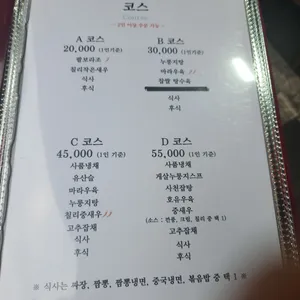 코스
Course
- 2인 이상 주문 가능 -
A 코스
20,000 (1인기준)
팔보라조
칠리작은새우
식사
후식
B 코스
30,000 (1인기준)
누룽지탕
마라우육
찹쌀 탕수육
식사
후식
C 코스
45,000 (1인 기준)
사품냉채
유산슬
마라우육
누룽지탕
칠리중새우
고추잡채
식사
후식
D 코스
55,000 (1인 기준)
사품냉채
게살누룽지스프
사천잡탕
호유우육
중새우
(소스 : 깐풍, 크림, 칠리 중 택 1)
고추잡채
식사
후식
※ 식사는 짜장, 짬뽕, 짬뽕냉면, 중국냉면, 볶음밥 중 택 1 ※